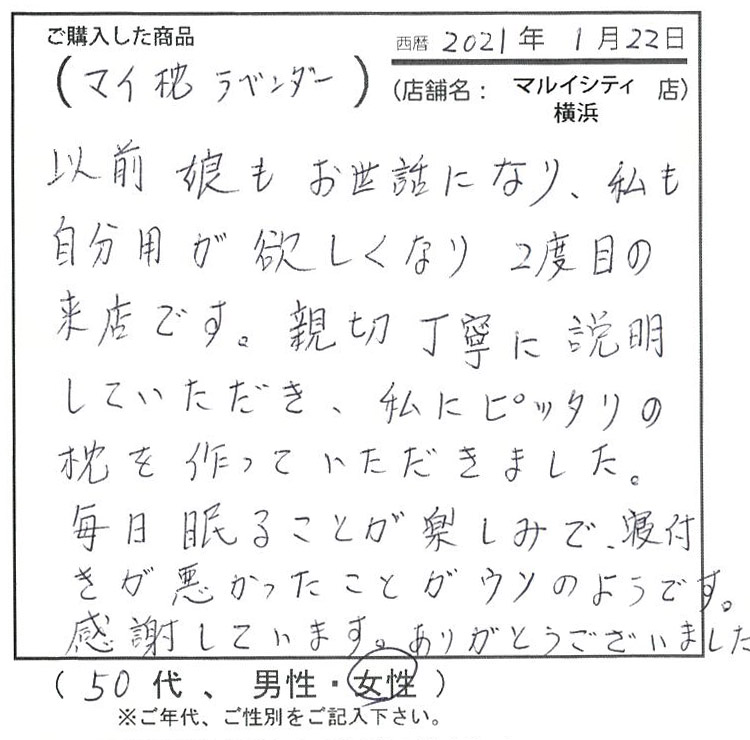 ご購入した商品
西暦 2021年 1月22日
(マイ枕 ラベンダー)
(店舗名: マルイシティ横浜 店)
以前 娘も お世話になり、私も
自分用が欲しくなり 2度目の
来店です。親切丁寧に説明
していただき、私にピッタリの
枕を作っていただきました。
毎日眠ることが楽しみで、寝付
きが悪かったことがウソのようです。
感謝しています。ありがとうございました
(50代、男性・女性)
※ご年代、ご性別をご記入下さい。